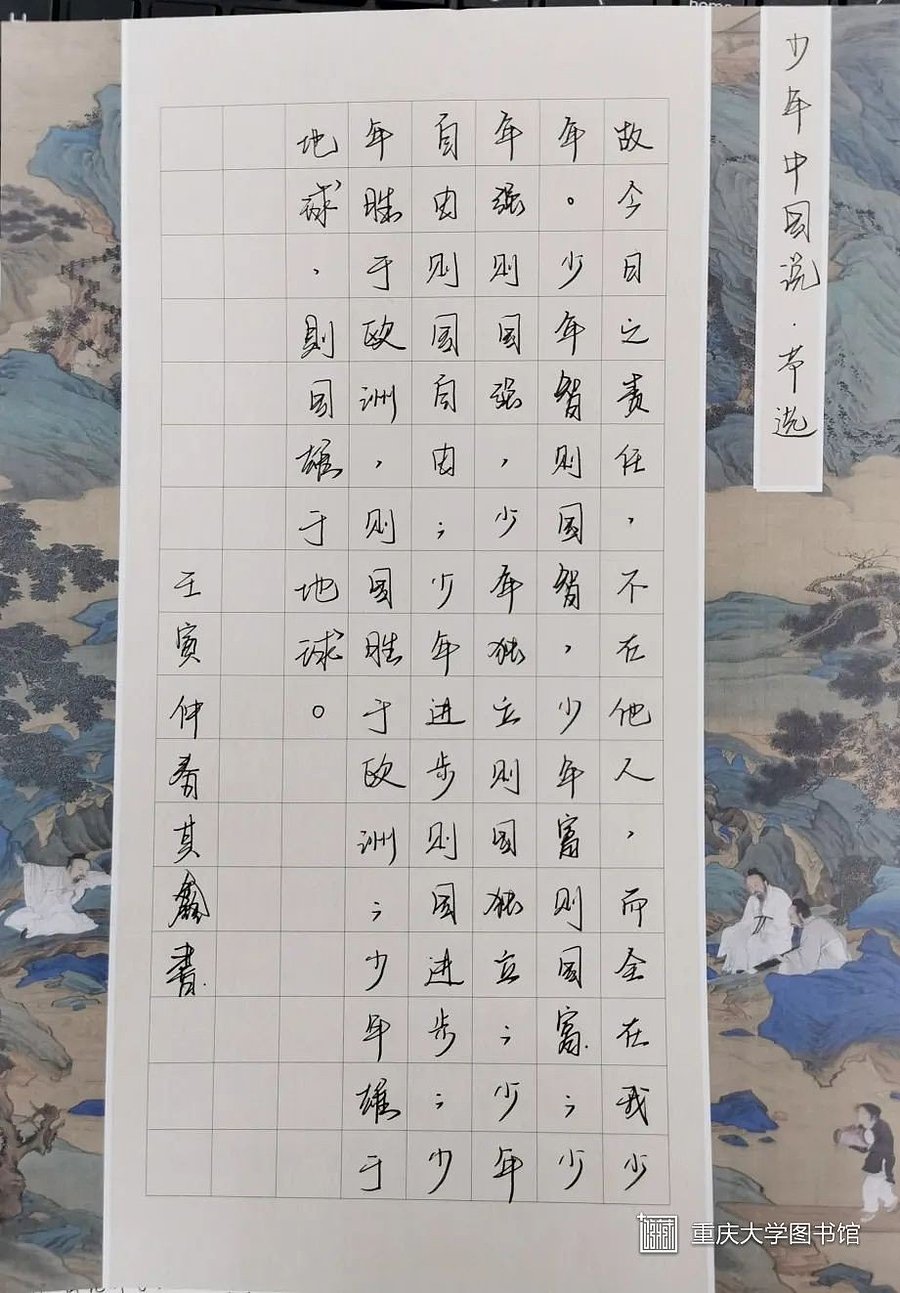 少年中国说·节选
故今日之责任，不在他人，而全在我少
年。少年智则国智，少年富则国富；少
年强则国强，少年独立则国独立；少年
自由则国自由；少年进步则国进步；少
年胜于欧洲，则国胜于欧洲；少年雄于
地球，则国雄于地球。
壬寅仲春其鑫书
重庆大学图书馆